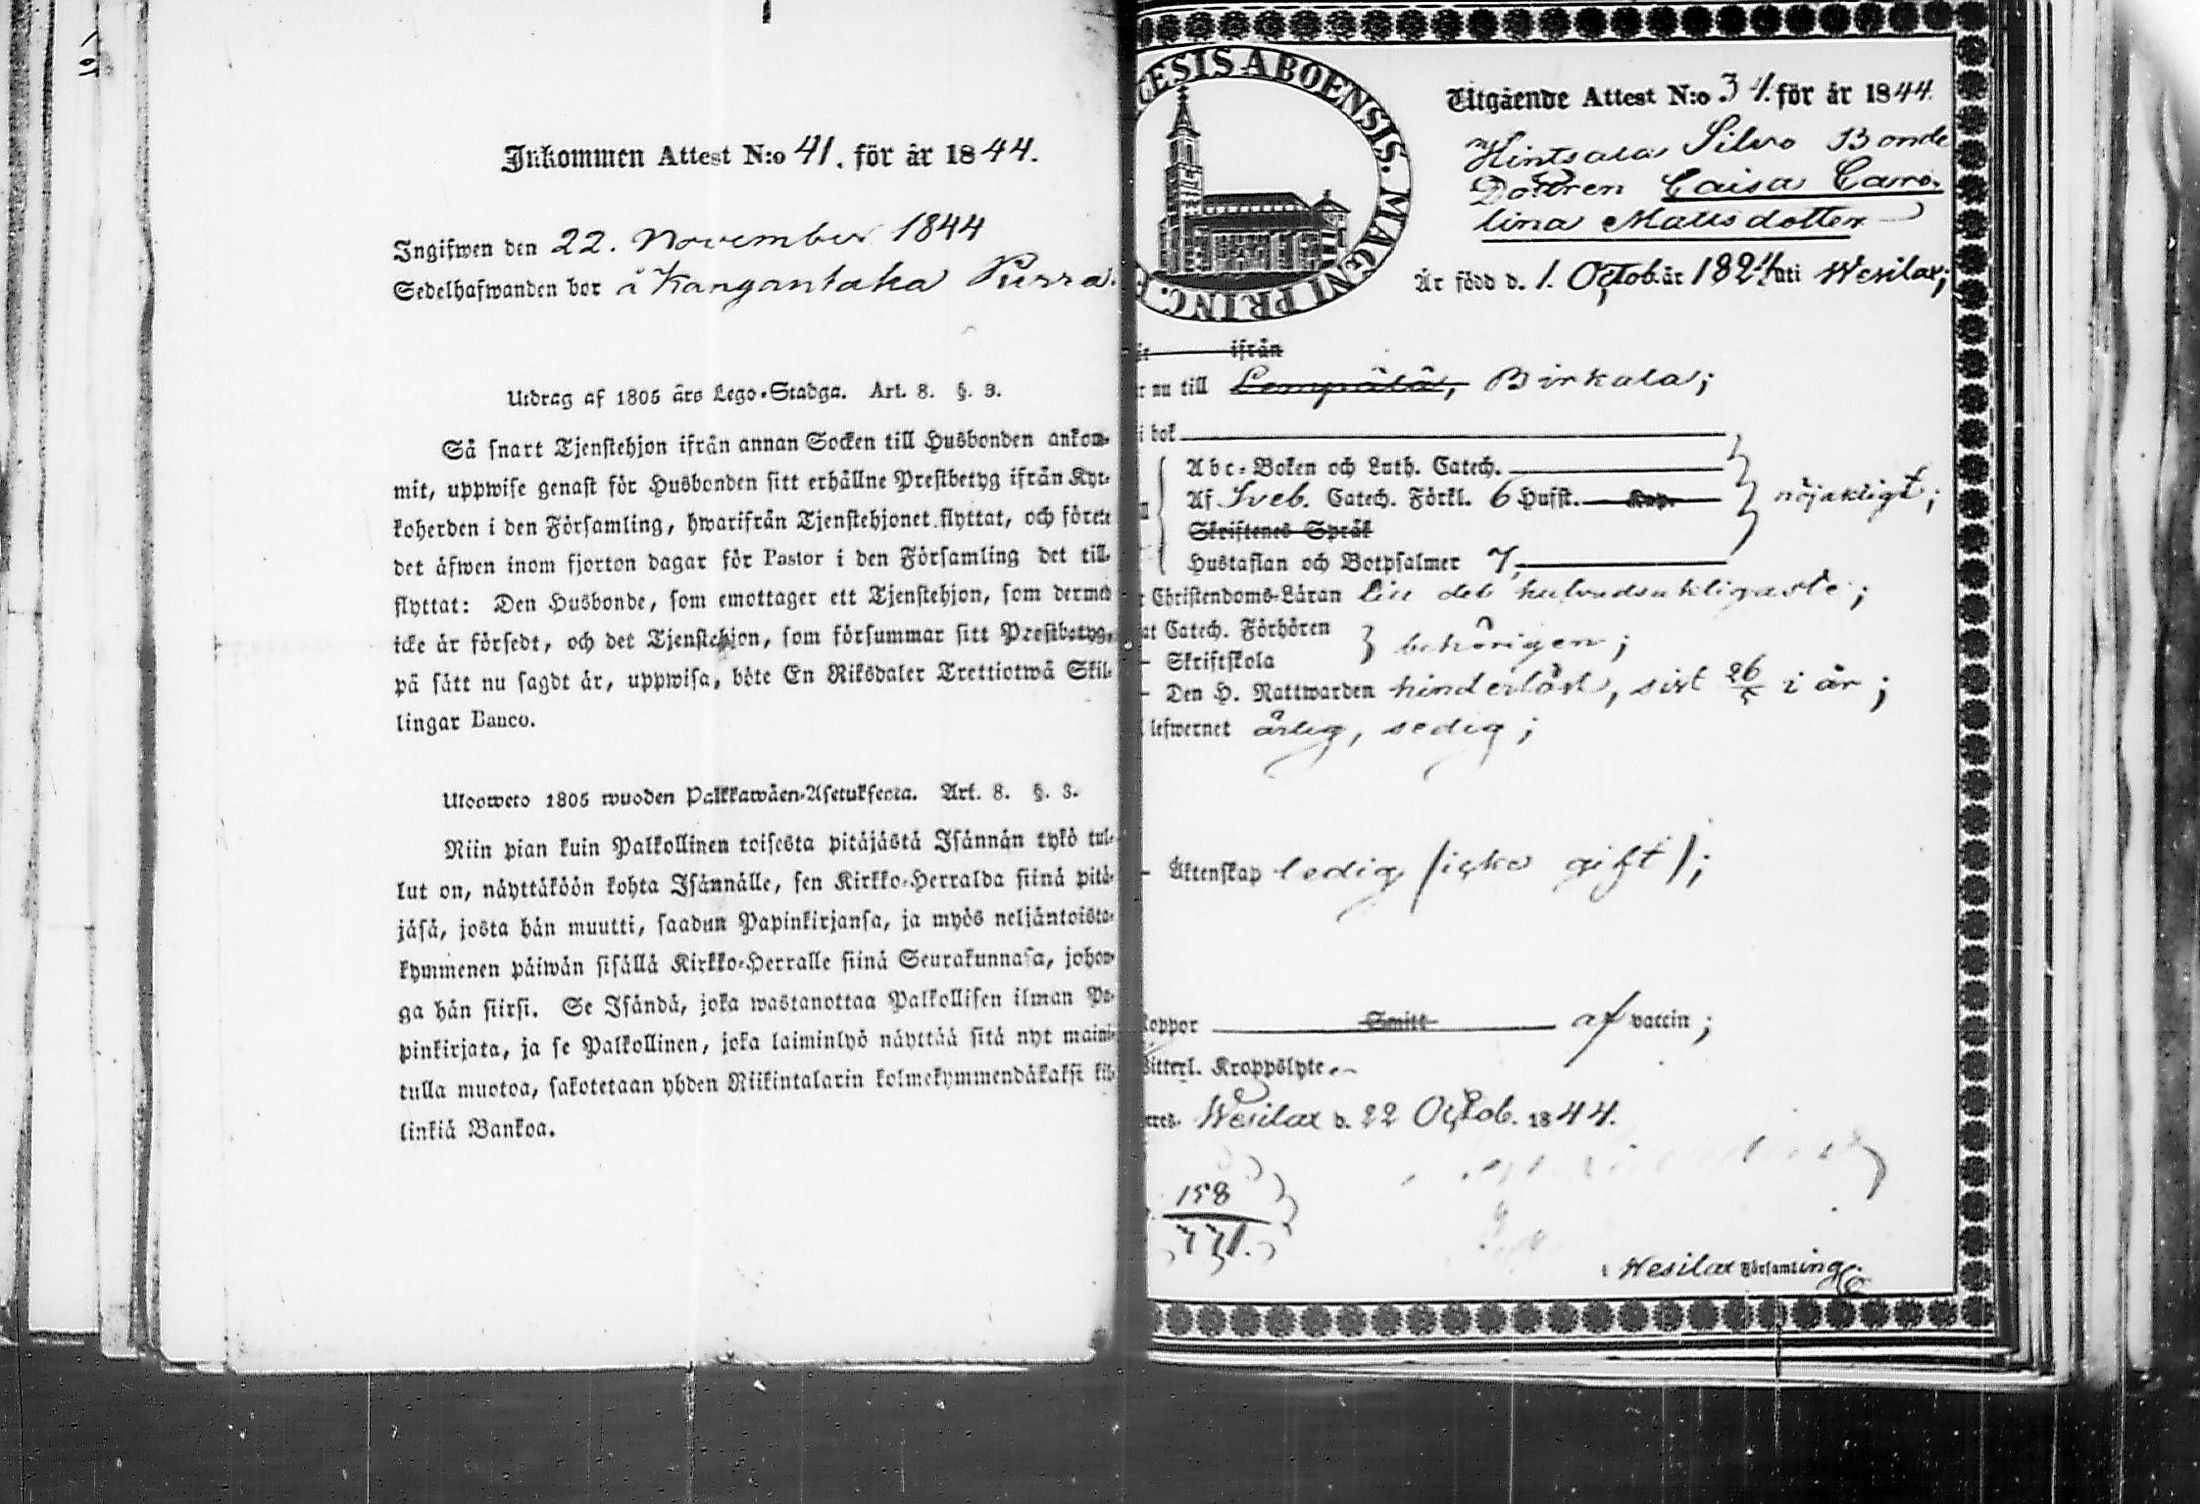 Inkommen Attest N:o 41. för år 1844.
Ingifwen den 22. November 1844
Sedelhafwanden bor å Kangantaka Purra.
Utdrag af 1805 års Lego-Stadga. Art. 8. §. 3.
Så snart Tjenstehjon ifrån annan Socken till Husbonden ankom-
mit, uppwise genast för Husbonden sitt erhållne Prestbetyg ifrån Kyr-
koherden i den Församling, hwarifrån Tjenstehjonet flyttat, och förete
det äfwen inom fjorton dagar för Pastor i den Församling det till-
flyttat: Den Husbonde, som emottager ett Tjenstehjon, som dermed
icke är försedt, och det Tjenstehjon, som försummar sitt Prestbetyg,
på sätt nu sagdt är, uppwisa, böte En Riksdaler Trettiotwå Skil-
lingar Banco.
Ulosweto 1805 wuoden Palkkawäen-Asetuksesta. Art. 8. §. 3.
Niin pian kuin Palkollinen toisesta pitäjästä Isännän tykö tul-
lut on, näyttäköön kohta Isännälle, sen Kirkko-Herralda siinä pitä-
jäsä, josta hän muutti, saadun Papinkirjansa, ja myös neljäntoista-
kymmenen päiwän sisällä Kirkko-Herralle siinä Seurakunnasa, johon-
ga hän siirsi. Se Isändä, joka wastanottaa Palkollisen ilman Pa-
pinkirjata, ja se Palkollinen, joka laiminlyö näyttää sitä nyt maini-
tulla muotoa, sakotetaan yhden Riikintalarin kolmekymmendäkaksi kil-
linkiä Bankoa.
CESIS ABOENSIS. MAGNI PRINC. F
Utgående Attest N:o 34. för år 1844.
Hintsala Silvo Bonde
Dottren Caisa Caro-
lina Mattsdotter
Är född d. 1. Octob. år 1824 uti Wesilax;
ifrån
nu till Lempälä, Birkala;
i bok
Abc-Boken och Luth. Catech.
Af Sveb. Catech. Förkl. 6 Hufst. Kap. nöjaktigt;
Skriftenes Språk
Hustaflan och Botpsalmer 7,
Christendoms-Läran till det hufvudsakligaste;
at Catech. Förhören
- Skriftskola behörigen;
- Den H. Nattwarden hinderlöst, sist 26/5 i år;
lefwernet ärlig, sedig;
- Äktenskap ledig (icke gift);
koppor Smitt af vaccin;
Witterl. Kroppslyte. -
Wesilax d. 22 Octob. 1844.
158
771.
i Wesilax Församling.